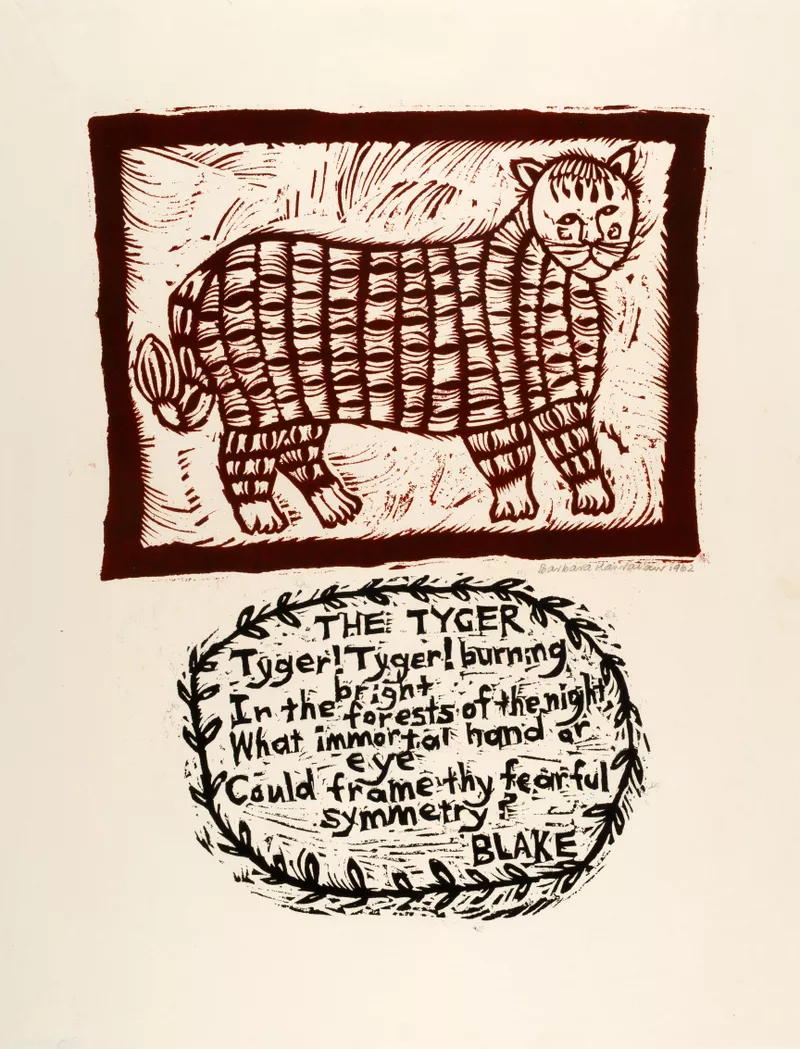 Barbara Hanrahan 1962
THE TYGER
Tyger! Tyger! burning
bright
In the forests of the night
What immortal hand or
eye
Could frame thy fearful
symmetry?
BLAKE